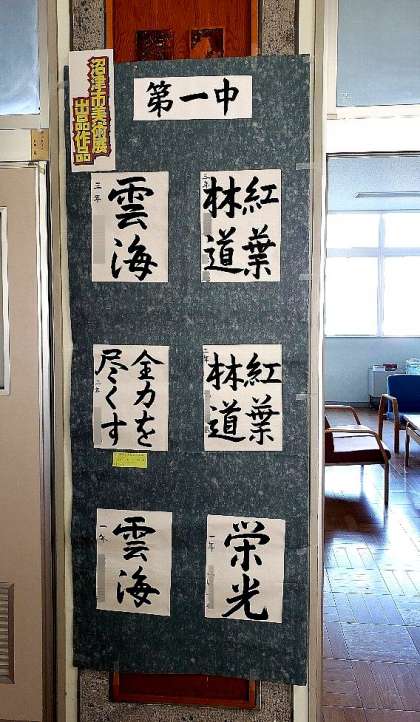 沼津市美術展
出品作品
第一中
紅葉
林道
三年
雲海
三年
紅葉
林道
二年
全力を
尽くす
二年
栄光
一年
雲海
一年